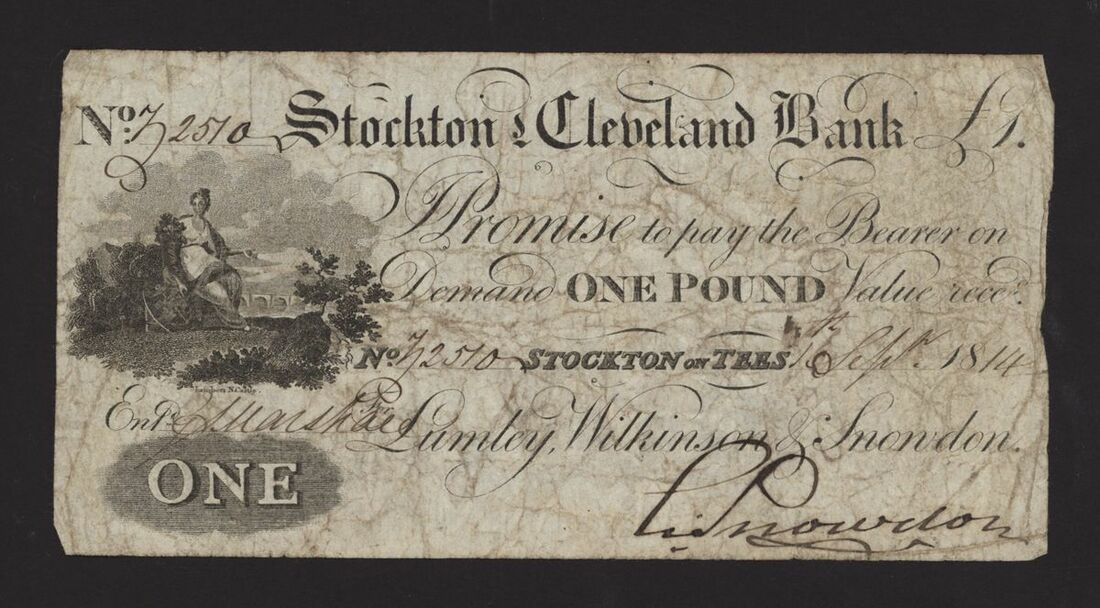 No. 72510 Stockton & Cleveland Bank £1.
I Promise to pay the Bearer on
Demand ONE POUND Value recd.
No. 72510 STOCKTON ON TEES 16th Sept. 1814
Lambert N.Castle.
Entd. Marshall For Lumley, Wilkinson & Snowdon.
ONE
Snowdon